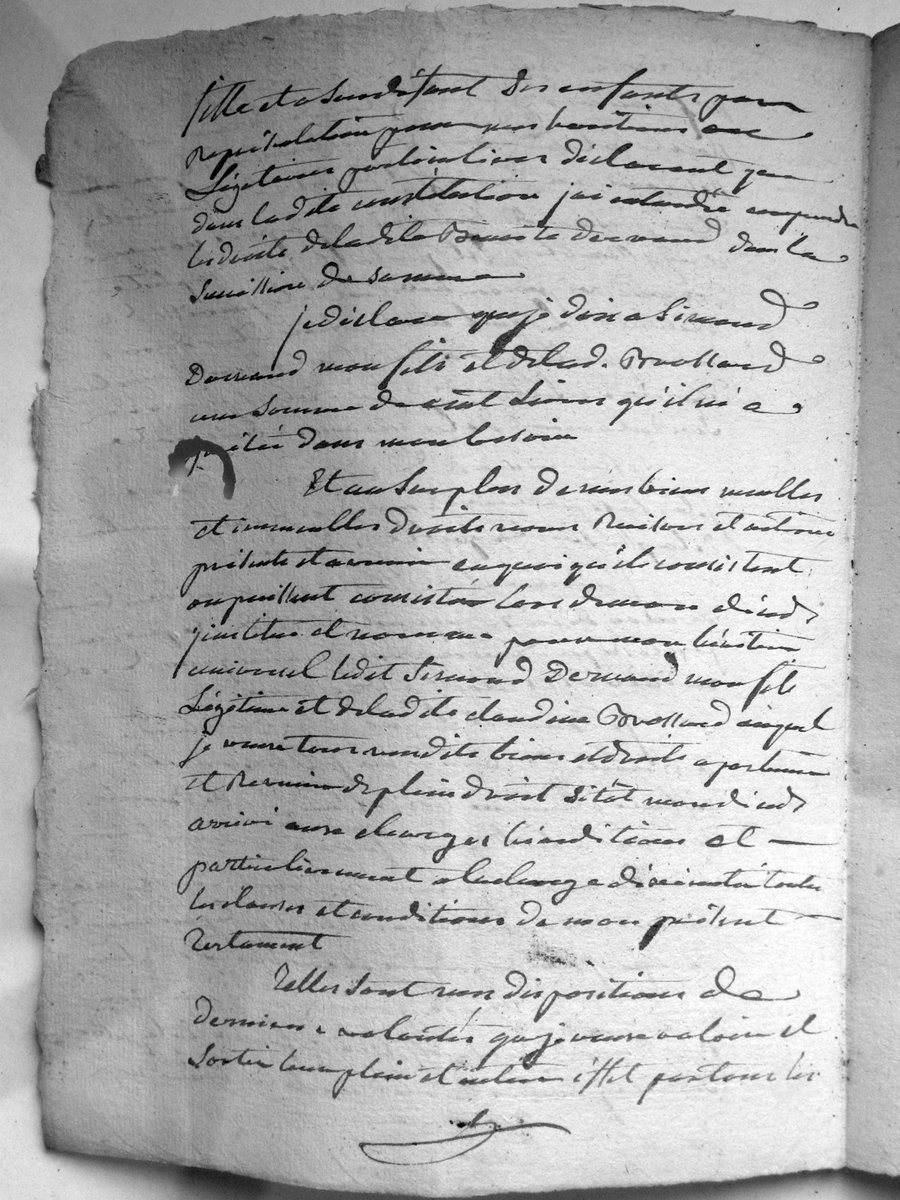 fille et a Son défaut Ses enfants par
Representation pour mes heritiers
Légitimes particuliers déclarant que
dans ladite institution j'ai entendu comprendre
les droits de ladite Benoite Dervand dans la
Succession de sa mere
je declare que je dois a Simond
Dervand mon fils et de lad. Brossard
une Somme de cent Livres qu'il m'a
pretée dans mon besoin
Et au Surplus de mes biens meubles
et immeubles droits noms Raisons et actions
présents et avenir en quoi qu'ils consistent
ou puissent consister lors de mon décéds
j'institue et nomme pour mon héritier
universel ledit Simond Dervand mon fils
Légitime et de ladite claudine Brossard auquel
je veux tous mesdits biens et droits apartenir
et Revenir de plein droit Sitôt mon décéds
arrivé aux charges conditions et
particulierement a la charge d'éxécuter toutes
les clauses et conditions de mon présent
testament
Telles sont mes dispositions de
derniere volontés que je veux valoir et
Sortir leur plein et entier effet par tous les